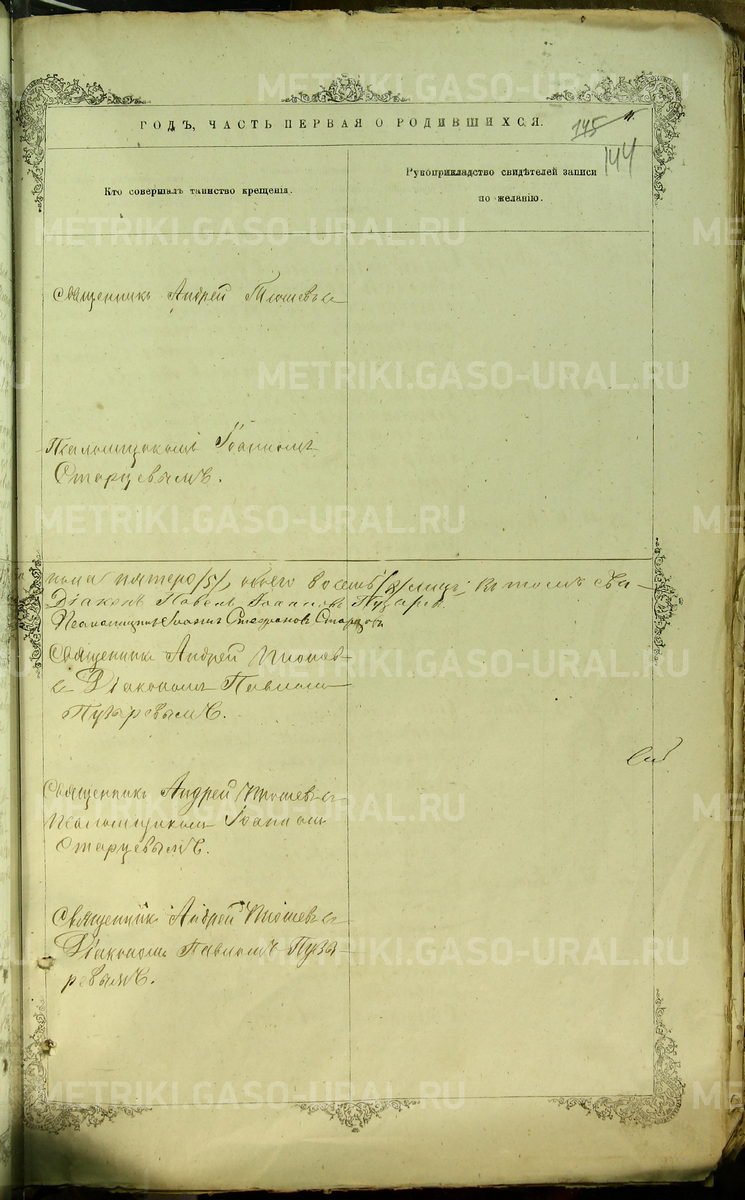 METRIKI.GASO-URAL.RU
ГОДЪ, ЧАСТЬ ПЕРВАЯ О РОДИВШИХСЯ.
145
144
Кто совершалъ таинство крещенія.
Рукоприкладство свидѣтелей записи
по желанію.
Священникъ Андрей Тюшевъ съ
Псаломщикомъ Іоанномъ
Старцевымъ.
пола пятеро /5/, обоего восемь /8/ лицъ; въ томъ сва-
Діаконъ Павелъ Іоанновъ Пузыревъ
Псаломщикъ Іоаннъ Стефановъ Старцевъ
Священникъ Андрей Тюшевъ
съ Діакономъ Павломъ
Пузыревымъ.
Священникъ Андрей Тюшевъ съ
Псаломщикомъ Іоанномъ
Старцевымъ.
Священникъ Андрей Тюшевъ съ
Діакономъ Павломъ Пузы-
ревымъ.